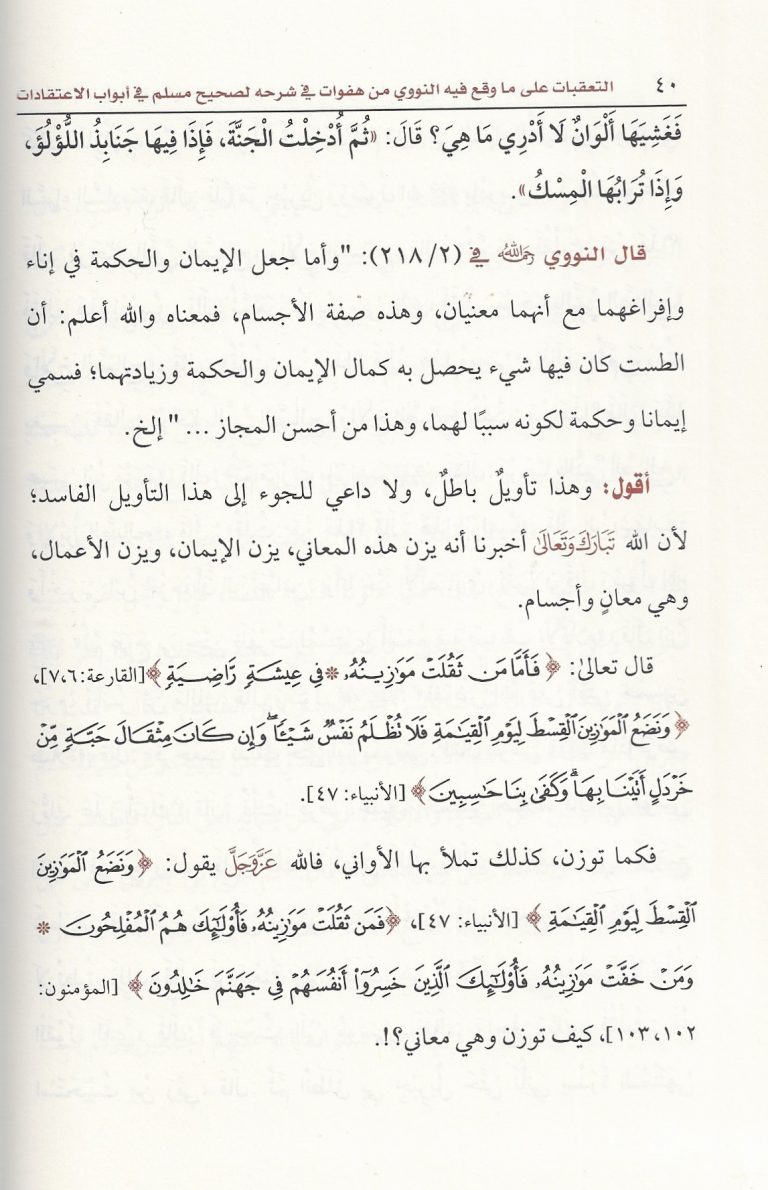 ٤٠ التعقبات على ما وقع فيه النووي من هفوات في شرحه لصحيح مسلم في أبواب الاعتقادات
فَغَشِيَهَا أَلْوَانٌ لَا أَدْرِي مَا هِيَ؟ قَالَ: «ثُمَّ أُدْخِلْتُ الْجَنَّةَ، فَإِذَا فِيهَا جَنَابِذُ اللُّؤْلُؤَ،
وَإِذَا تُرَابُهَا الْمِسْكُ».
قال النووي رَحِمَهُ اللَّهُ في (٢/ ٢١٨): "وأما جعل الإيمان والحكمة في إناء
وإفراغهما مع أنهما معنيان، وهذه صفة الأجسام، فمعناه والله أعلم: أن
الطست كان فيها شيء يحصل به كمال الإيمان والحكمة وزيادتهما؛ فسمي
إيمانا وحكمة لكونه سببًا لهما، وهذا من أحسن المجاز ... " إلخ.
أقول: وهذا تأويلٌ باطلٌ، ولا داعي للجوء إلى هذا التأويل الفاسد؛
لأن الله تَبَارَكَ وَتَعَالَى أخبرنا أنه يزن هذه المعاني، يزن الإيمان، ويزن الأعمال،
وهي معانٍ وأجسام.
قال تعالىٰ: ﴿ فَأَمَّا مَن ثَقُلَتْ مَوَٰزِينُهُۥ * فِي عِيشَةٖ رَّاضِيَةٖ ﴾[القارعة:٧،٦]،
﴿ وَنَضَعُ ٱلْمَوَٰزِينَ ٱلْقِسْطَ لِيَوْمِ ٱلْقِيَٰمَةِ فَلَا تُظْلَمُ نَفْسٌ شَيْـًٔاۖ وَإِن كَانَ مِثْقَالَ حَبَّةٖ مِّنْ
خَرْدَلٍ أَتَيْنَا بِهَاۗ وَكَفَىٰ بِنَا حَٰسِبِينَ ﴾ [الأنبياء: ٤٧].
فكما توزن، كذلك تملأ بها الأواني، فالله عَزَّ وَجَلَّ يقول: ﴿ وَنَضَعُ ٱلْمَوَٰزِينَ
ٱلْقِسْطَ لِيَوْمِ ٱلْقِيَٰمَةِ ﴾ [الأنبياء: ٤٧]، ﴿فَمَن ثَقُلَتْ مَوَٰزِينُهُۥ فَأُو۟لَٰٓئِكَ هُمُ ٱلْمُفْلِحُونَ *
وَمَنْ خَفَّتْ مَوَٰزِينُهُۥ فَأُو۟لَٰٓئِكَ ٱلَّذِينَ خَسِرُوٓا۟ أَنفُسَهُمْ فِي جَهَنَّمَ خَٰلِدُونَ ﴾ [المؤمنون:
١٠٢،١٠٣]، كيف توزن وهي معاني؟!.